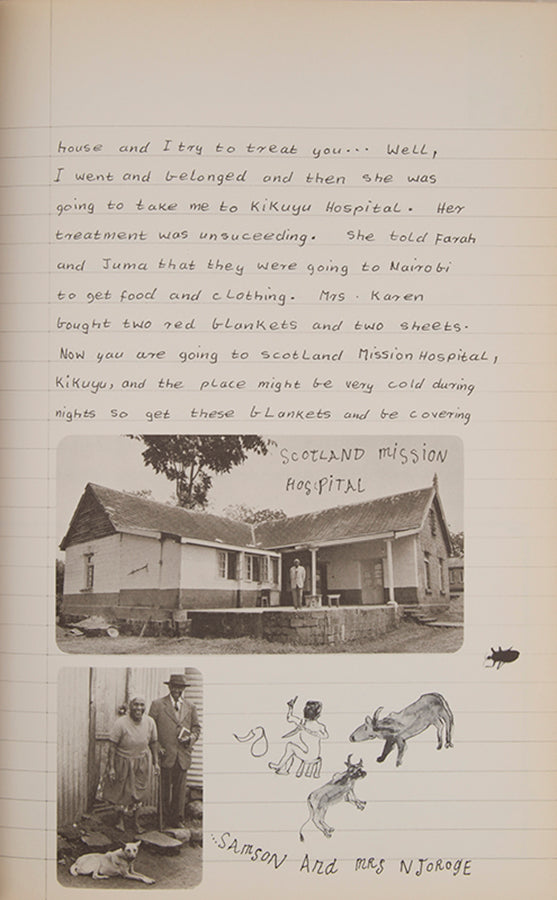 house and I try to treat you... Well,
I went and belonged and then she was
going to take me to Kikuyu Hospital. Her
treatment was unsuceeding. She told Farah
and Juma that they were going to Nairobi
to get food and clothing. Mrs. Karen
bought two red blankets and two sheets.
Now you are going to Scotland Mission Hospital,
Kikuyu, and the place might be very cold during
nights so get these blankets and be covering
SCOTLAND MISSION
HOSPITAL
...SAMSON And MRS NJOROGE